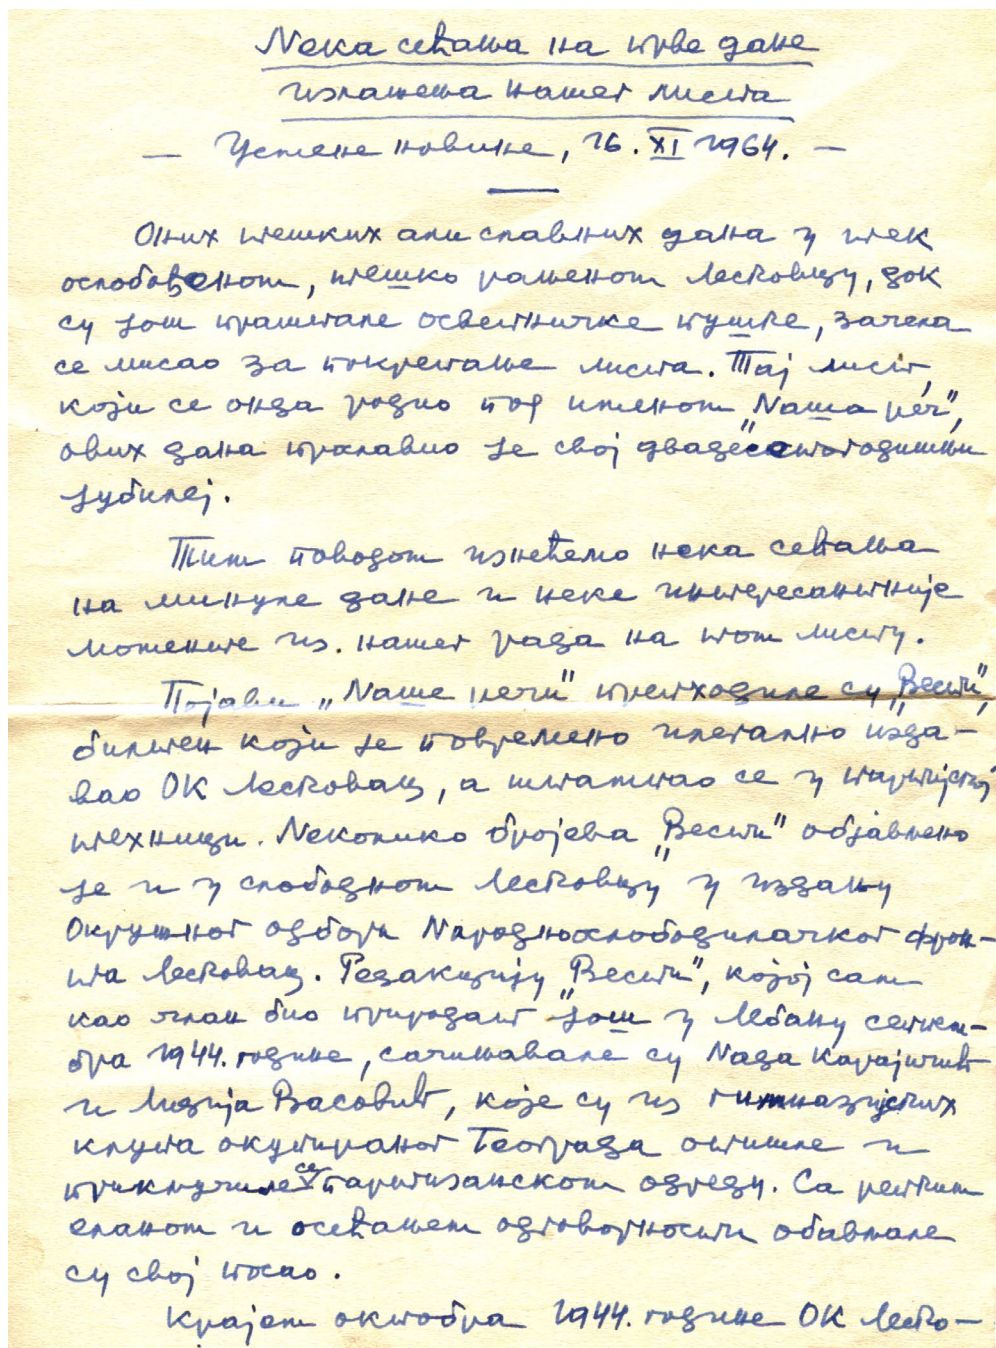 Нека сећања на прве дане
излажења нашег листа
— Усмене новине, 26. XI 1964. —
Оних тешких али славних дана у тек
ослобођеном, тешко рањеном Лесковцу, док
су још праштале осветничке пушке, зачела
се мисао за покретање листа. Тај лист,
који се онда родио под именом „Наша реч",
ових дана прославио је свој двадесетогодишњи
јубилеј.
Тим поводом изнећемо нека сећања
на минуле дане и неке интересантније
моменте из нашег рада на том листу.
Појави „Наше речи" претходиле су „Вести",
билтен који је повремено илегално изда-
вао ОК Лесковац, а штампао се у партијској
техници. Неколико бројева „Вести" објављено
је и у слободном Лесковцу у издању
Окружног одбора Народноослободилачког фрон-
та Лесковац. Редакцију „Вести", којој сам
као члан био придодат још у Лебану септем-
бра 1944. године, сачињавале су Нада Карајичић
и Лидија Васовић, које су из гимназијских
клупа окупираног Београда отишле и
прикључиле се партизанском одреду. Са ретким
еланом и осећањем одговорности обављале
су свој посао.
Крајем октобра 1944. године ОК Леско-